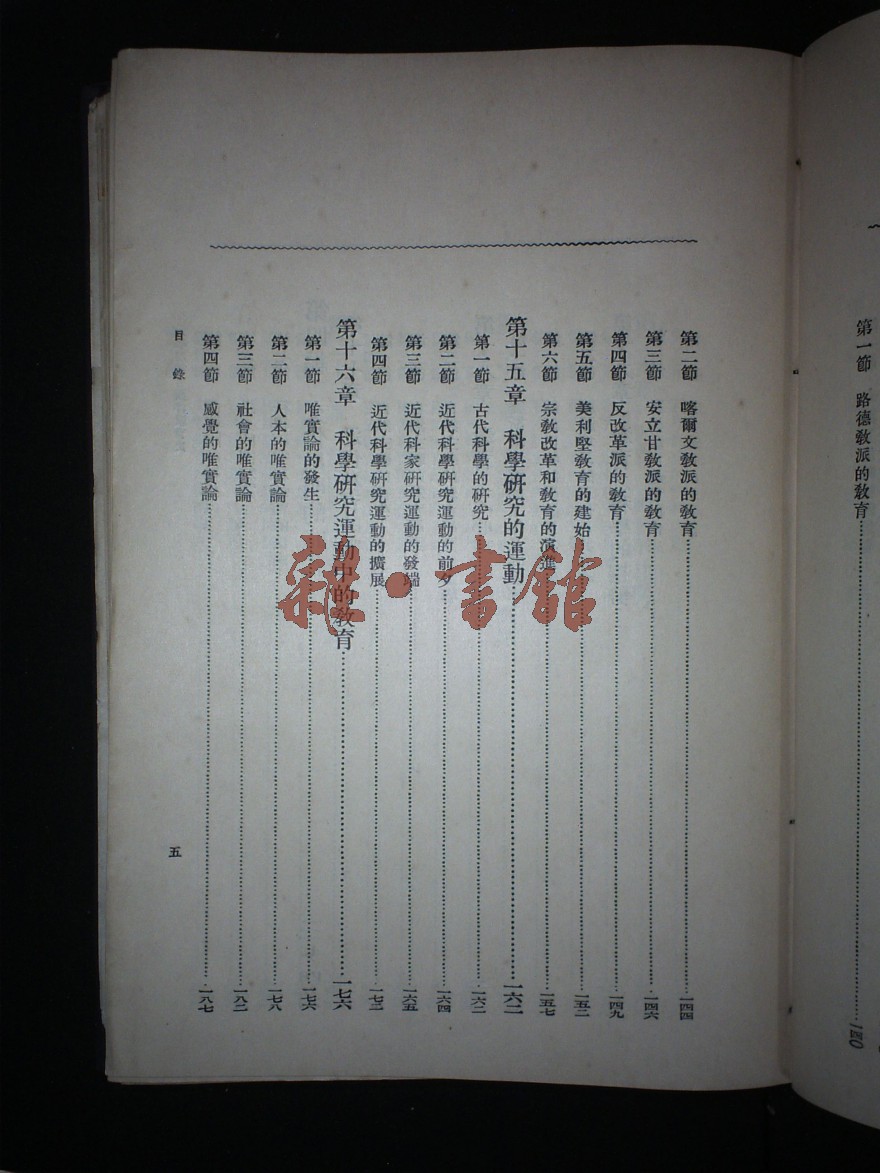 第一節　路德教派的教育……一四〇
第二節　喀爾文教派的教育……一四四
第三節　安立甘教派的教育……一四六
第四節　反改革派的教育……一四九
第五節　美利堅教育的建始……一五二
第六節　宗教改革和教育的演進……一五七
第十五章　科學研究的運動……一六二
第一節　古代科學的研究……一六二
第二節　近代科學研究運動的前夕……一六四
第三節　近代科家研究運動的發端……一六五
第四節　近代科學研究運動的擴展……一七三
第十六章　科學研究運動中的教育……一七六
第一節　唯實論的發生……一七六
第二節　人本的唯實論……一七八
第三節　社會的唯實論……一八二
第四節　感覺的唯實論……一八七
目錄
五
雜·書館